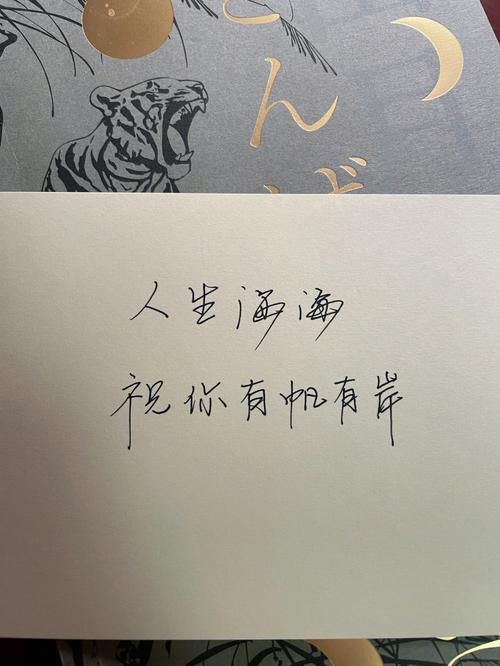 んげ
人生海海
祝你有帆有岸